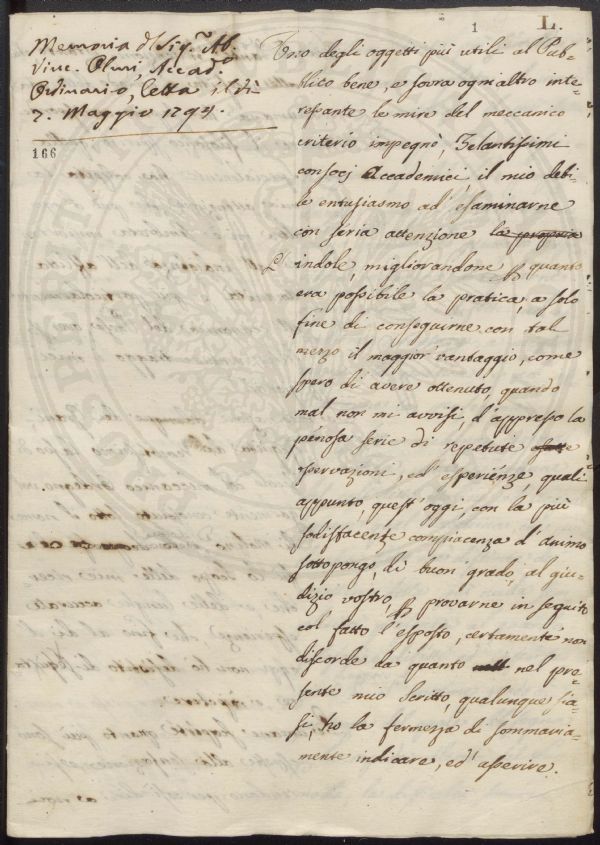 1
L.
Memoria del Sig.r Ab.
Vinc. Olmi, Accad.o
Ordinario, letta il dì
7. Maggio 1794.
166
Uno degli oggetti più utili al Pub-
blico bene, e sovra ogni altro inte-
ressante le mire del meccanico
criterio impegnò, Zelantissimi
consocj Accademici, il mio debi-
le entusiasmo ad' esaminarne
con seria attenzione la propria
L' indole, migliorandone per quanto
era possibile la pratica, a solo
fine di conseguirne con tal
mezzo il maggior vantaggio, come
spero di avere ottenuto, quando
mal non mi avvisi, d'appresso la
penosa serie di repetute
osservazioni, ed' esperienze, quali
appunto, quest' oggi, con la più
sodisfacente compiacenza d' animo
sottopongo, di buon grado, al giu-
dizio vostro, per provarne in seguito
col fatto l' esposto, certamente non
discorde da quanto nel pre-
sente mio scritto, qualunque sia-
si, ho la fermezza di sommaria-
mente indicare, ed' asserire.